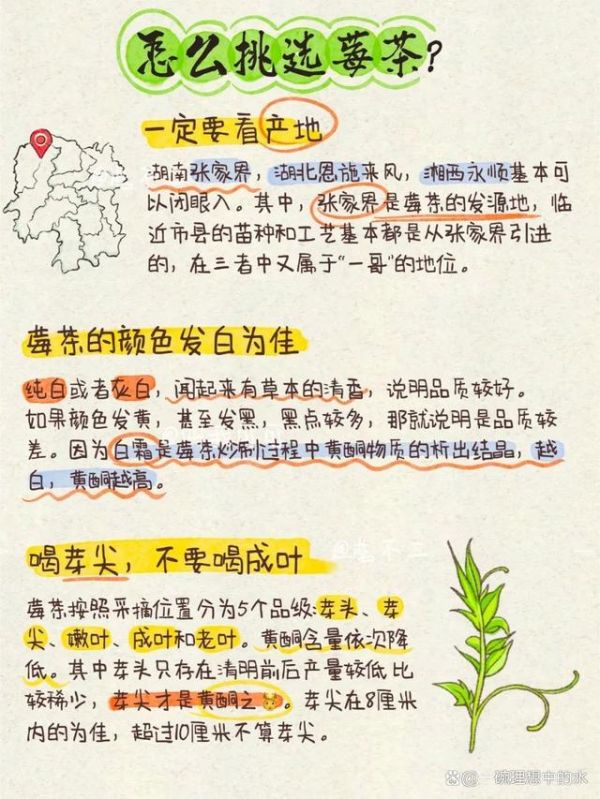 怎么挑选莓茶？
一定要看产地
湖南张家界，湖北恩施来风，湘西永顺基本可
以闭眼入。其中，张家界是莓茶的发源地，临
近市县的苗种和工艺基本都是从张家界引进
的，在三者中又属于“一哥”的地位。
莓茶的颜色发白为佳
纯白或者灰白，闻起来有草本的清香，说明品质较好。
如果颜色发黄，甚至发黑，黑点较多，那就说明是品质较
差。因为白霜是莓茶炒制过程中黄酮物质的析出结晶，越
白，黄酮越高。
喝芽尖，不要喝成叶
莓茶按照采摘位置分为5个品级：芽头、芽
尖、嫩叶、成叶和老叶。黄酮含量依次降
低。其中芽头只存在清明前后产量较低比
较稀少，芽尖才是黄酮之🐮。芽尖在8厘米
内的为佳，超过10厘米不算芽尖。
@一碗理想中的水